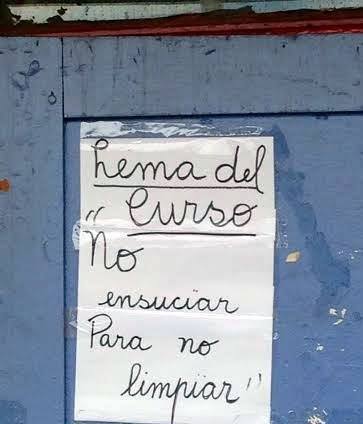 Lema del
Curso
"No
ensuciar
Para no
limpiar"